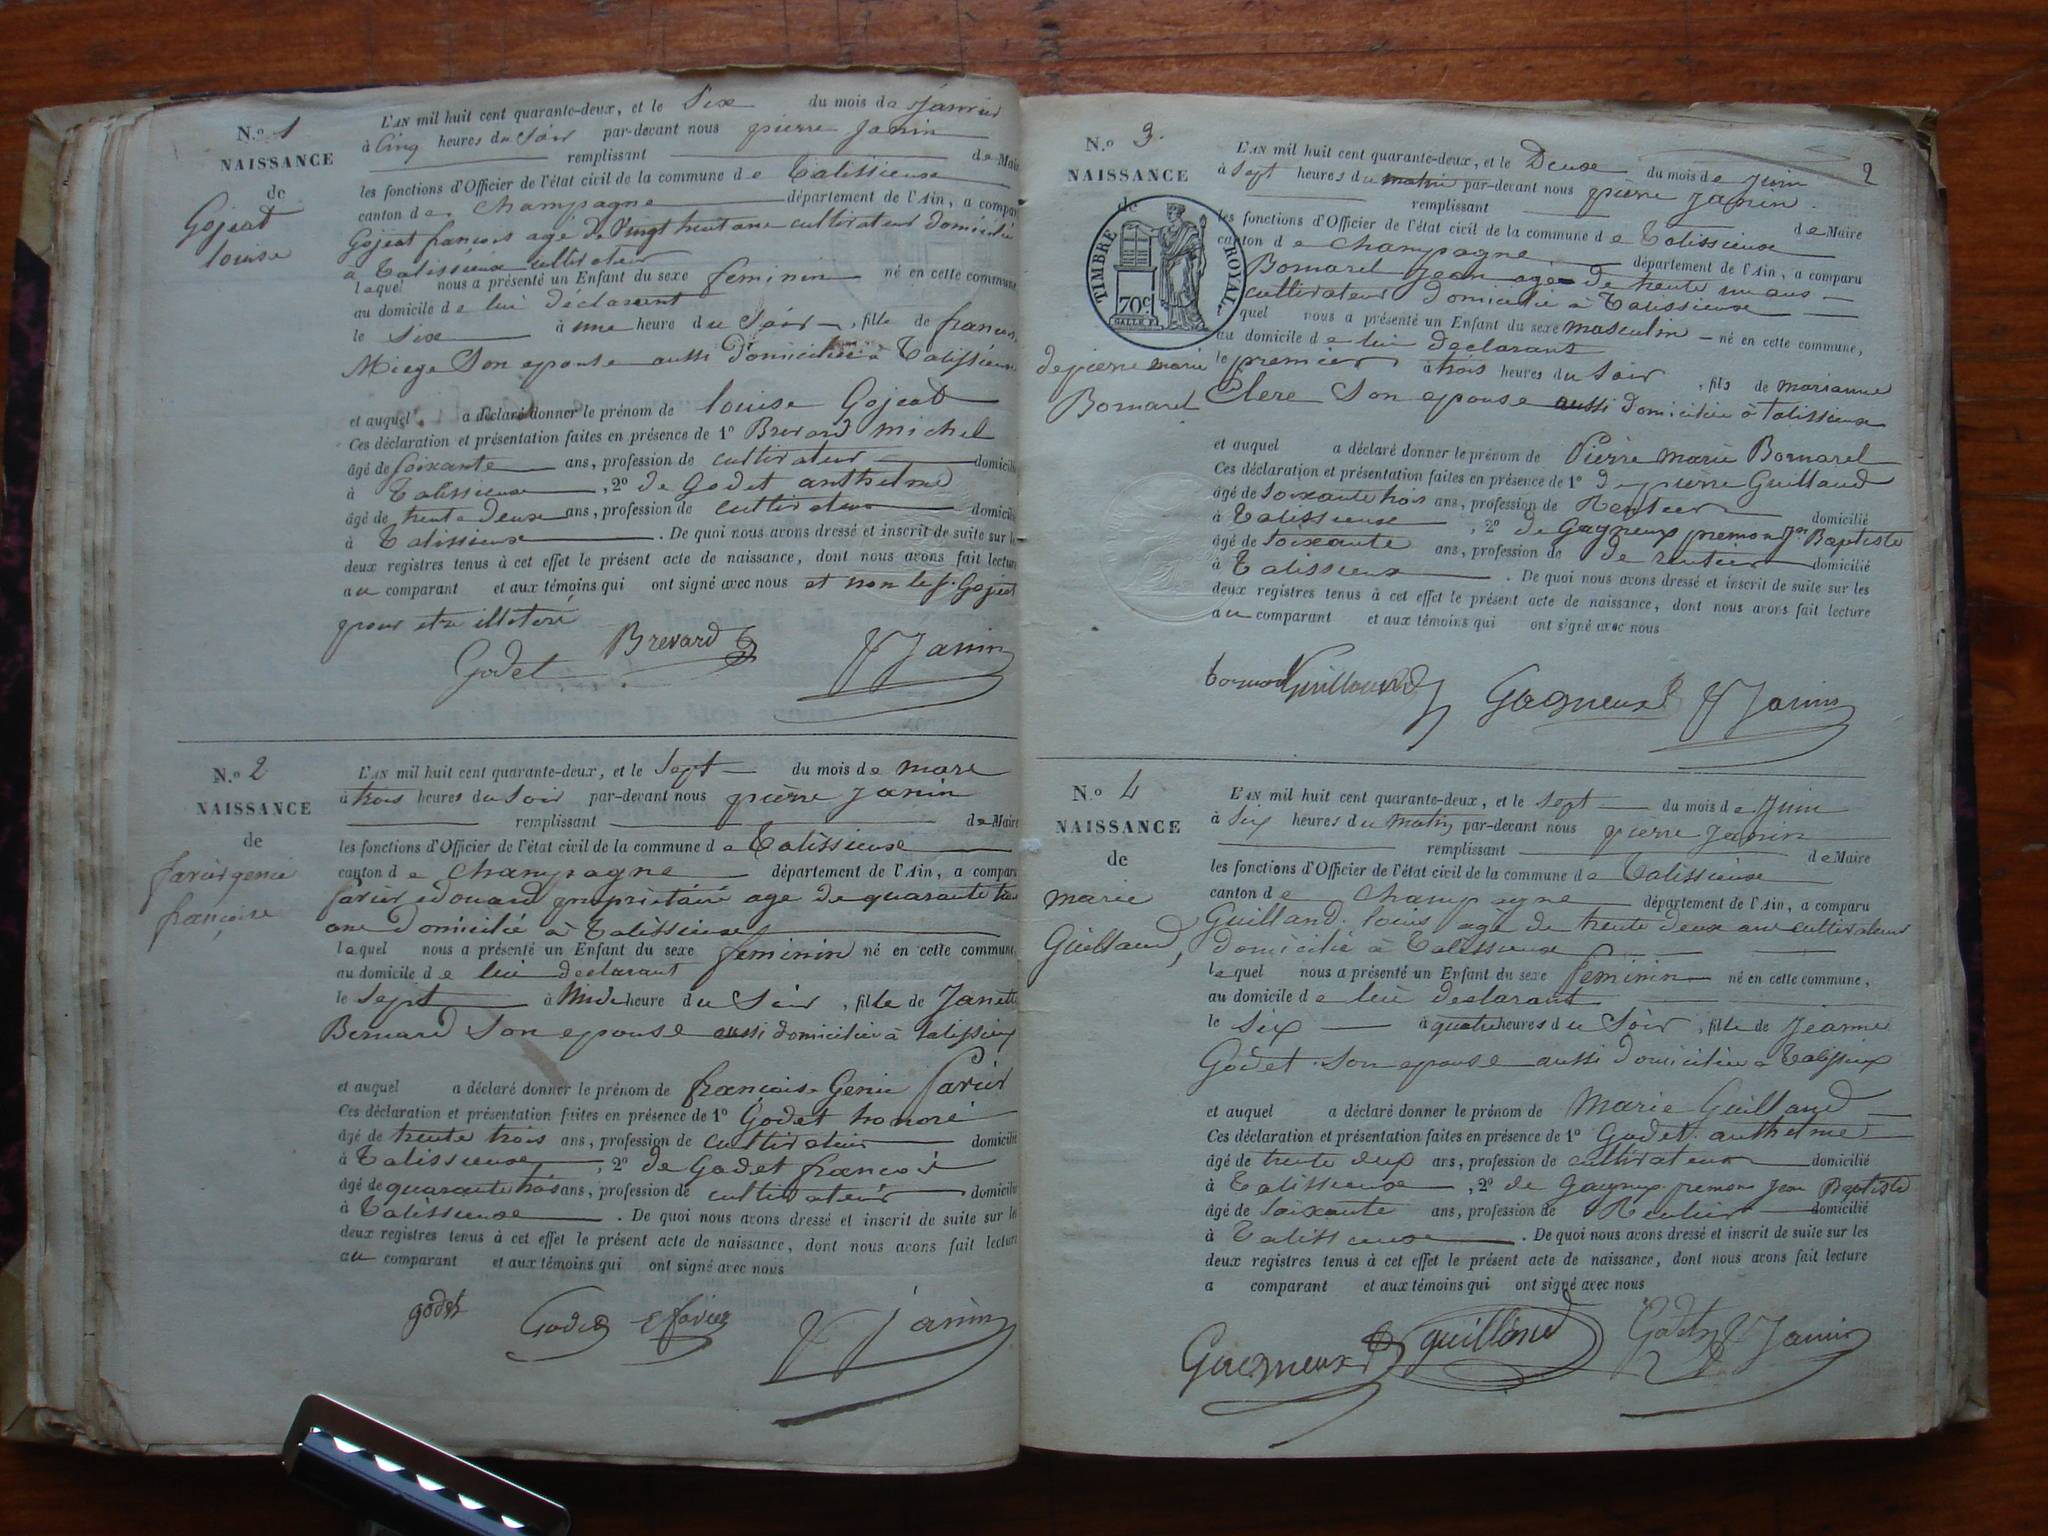 N.o 1
NAISSANCE
de
Gojeat
louise
L'AN mil huit cent quarante-deux, et le Six du mois de Janvier
à Cinq heures du Soir par-devant nous pierre Janin
remplissant de Maire
les fonctions d'Officier de l'état civil de la commune de Talissieux
canton de Champagne département de l'Ain, a comparu
Gojeat francois age de Vingt huit ans cultivateur domicilié
a Talissieux cultivateur
lequel nous a présenté un Enfant du sexe feminin né en cette commune
au domicile de lui déclarent
le Six à une heure du Soir, fille de francoise
Miege Son epouse aussi domiciliée à Talissieux
et auquel a déclaré donner le prénom de louise Gojeat
Ces déclaration et présentation faites en présence de 1o Brevard michel
âgé de soixante ans, profession de cultivateur domicilié
à Talissieux, 2o de Godet anthelme
âgé de trente deux ans, profession de cultivateur domicilié
à Talissieux. De quoi nous avons dressé et inscrit de suite sur les
deux registres tenus à cet effet le présent acte de naissance, dont nous avons fait lecture
au comparant et aux témoins qui ont signé avec nous et non le p. Gojeat
pour etre illeteré
Godet Brevard Janin
N.o 2
NAISSANCE
de
favier genie
françoise
L'AN mil huit cent quarante-deux, et le Sept du mois de mars
à trois heures du Soir par-devant nous pierre Janin
remplissant de Maire
les fonctions d'Officier de l'état civil de la commune de Talissieux
canton de Champagne département de l'Ain, a comparu
favier edouard propriétaire age de quarante trois
ans domicilié à Talissieux
lequel nous a présenté un Enfant du sexe feminin né en cette commune,
au domicile de lui declarant
le Sept à heure du Soir, fille de Janette
Bernard Son epouse aussi domiciliée à talissieux
et auquel a déclaré donner le prénom de françoise Genie favier
Ces déclaration et présentation faites en présence de 1o Godet honoré
âgé de trente trois ans, profession de cultivateur domicilié
à Talissieux, 2o de Godet francois
âgé de quarante trois ans, profession de cultivateur domicilié
à Talissieux. De quoi nous avons dressé et inscrit de suite sur les
deux registres tenus à cet effet le présent acte de naissance, dont nous avons fait lecture
au comparant et aux témoins qui ont signé avec nous
godet Godet E favier Janin
2
N.o 3.
NAISSANCE
de
TIMBRE ROYAL
70c.
de pierre marie
Bornarel
L'AN mil huit cent quarante-deux, et le Deux du mois de Juin
à Sept heures du matin par-devant nous pierre Janin
remplissant de Maire
les fonctions d'Officier de l'état civil de la commune de Talissieux
canton de Champagne département de l'Ain, a comparu
Bornarel Jean agé de trente un ans
cultivateur domicilié à Talissieux
quel nous a présenté un Enfant du sexe masculin né en cette commune,
au domicile de lui declarant
le premier à trois heures du Soir, fils de marianne
Clerc Son epouse aussi domiciliée à talissieux
et auquel a déclaré donner le prénom de Pierre marie Bornarel
Ces déclaration et présentation faites en présence de 1o de pierre Guilland
âgé de soixante trois ans, profession de Rentier domicilié
à Talissieux, 2o de Gagneux premons Jn Baptiste
âgé de Soixante ans, profession de de rentier domicilié
à Talissieux. De quoi nous avons dressé et inscrit de suite sur les
deux registres tenus à cet effet le présent acte de naissance, dont nous avons fait lecture
au comparant et aux témoins qui ont signé avec nous
Guilland Gagneux Janin
N.o 4
NAISSANCE
de
marie
Guilland,
L'AN mil huit cent quarante-deux, et le Sept du mois de Juin
à Six heures du matin par-devant nous pierre Janin
remplissant de Maire
les fonctions d'Officier de l'état civil de la commune de Talissieux
canton de Champagne département de l'Ain, a comparu
Guilland louis age de trente deux ans cultivateur
domicilié à Talissieux
lequel nous a présenté un Enfant du sexe feminin né en cette commune,
au domicile de lui declarant
le Six à quatre heures du Soir, fille de Jeanne
Godet Son epouse aussi domiciliée a Talissieux
et auquel a déclaré donner le prénom de Marie Guilland
Ces déclaration et présentation faites en présence de 1o Godet anthelme
âgé de trente deux ans, profession de cultivateur domicilié
à Talissieux, 2o de Gagneux premons Jean Baptiste
âgé de Soixante ans, profession de Rentier domicilié
à Talissieux. De quoi nous avons dressé et inscrit de suite sur les
deux registres tenus à cet effet le présent acte de naissance, dont nous avons fait lecture
a comparant et aux témoins qui ont signé avec nous
Gagneux guilland Godet Janin